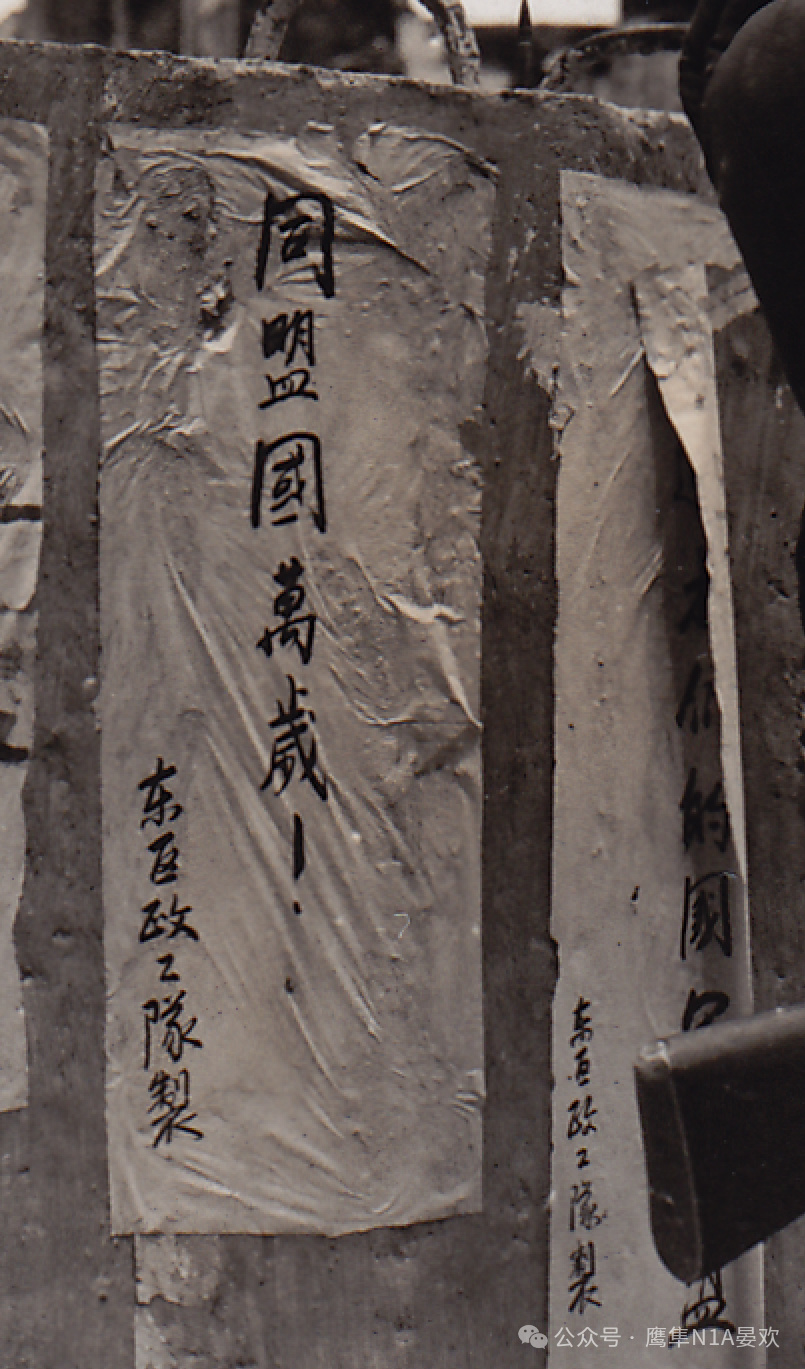 的國
东区政工隊製
同盟國萬歲！
东区政工隊製
公众号 · 鹰隼N1A晏欢